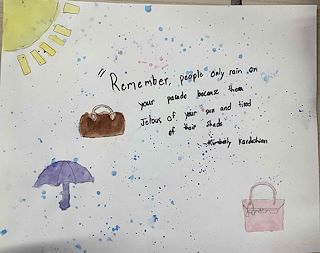 "Remember, people only rain on
your parade because them
Jelous of your sun and tired
of their shade
-Kimberly Kardashian